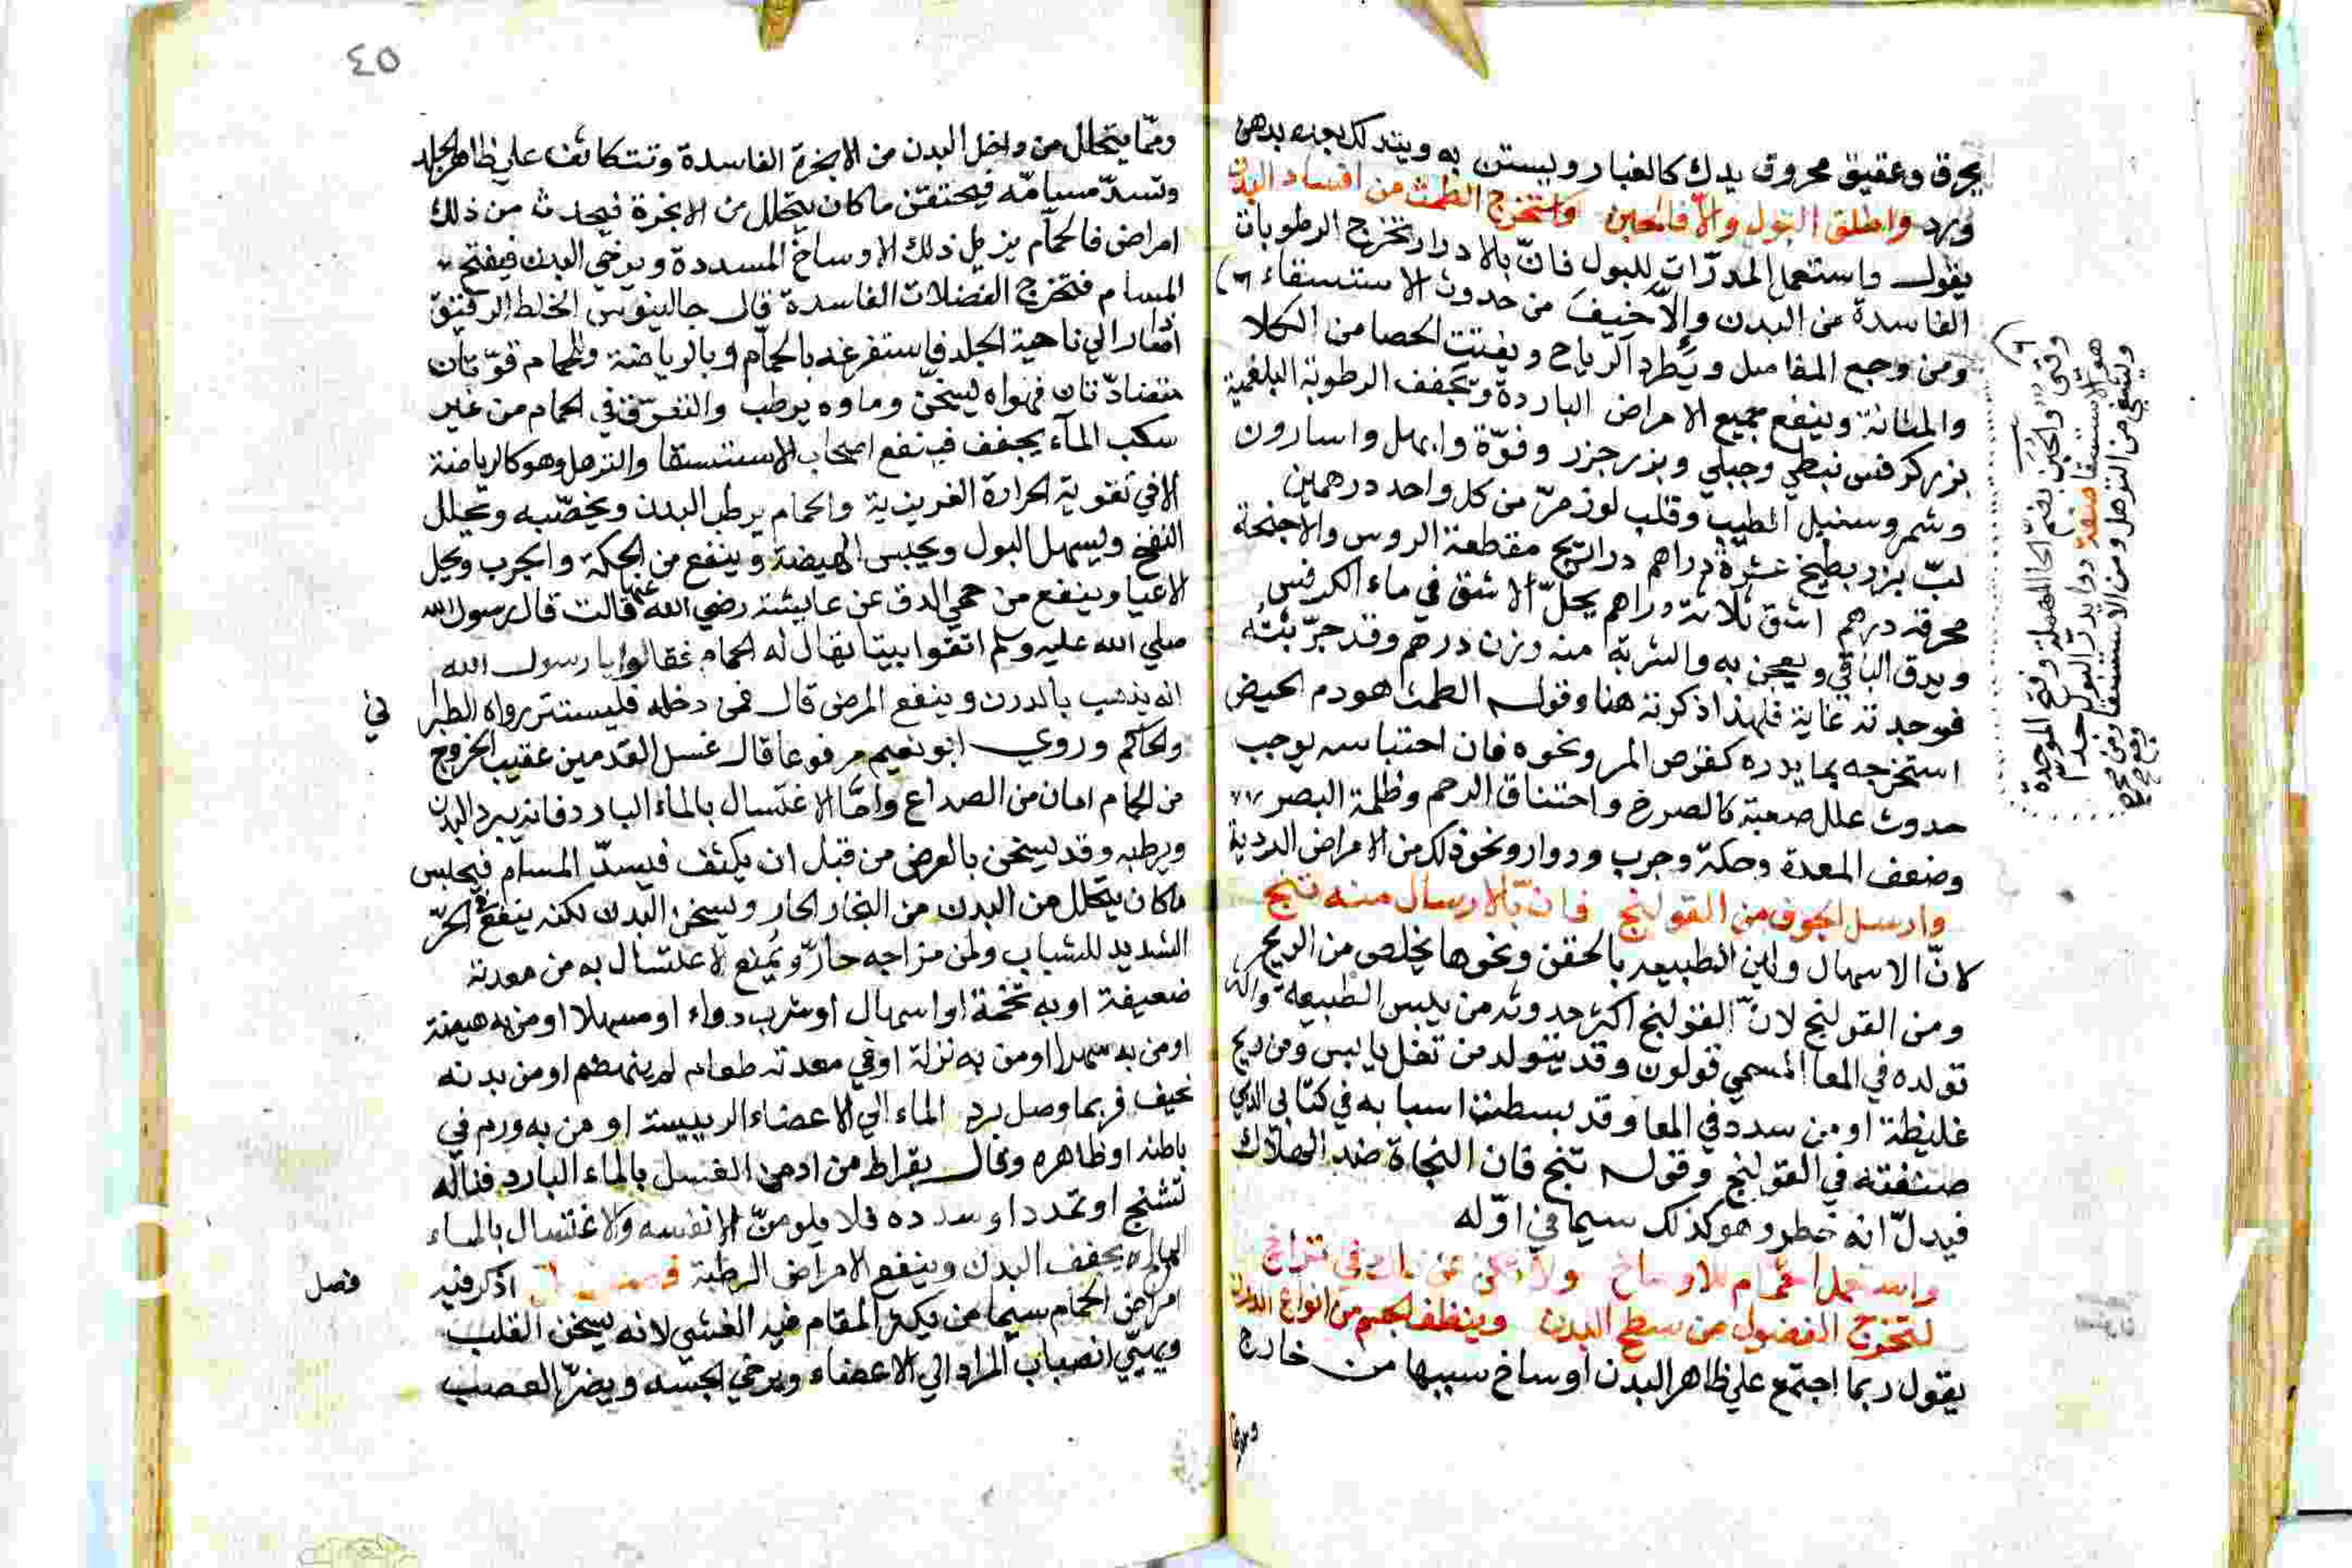 يحرق وعقيق محروق يدك كالغبار ويستن به ويتدلك بعده بدهن
ورد واطلق البول والا فالحبن واستخرج الطمث من افساد البدن
يقول واستعمل المدرّات للبول فانّ بالادرار تخرج الرطوبات
الفاسدة من البدن وإلّا خيف من حدوث الاستسقاء
ومن وجع المفاصل ويطرد الرياح ويفتت الحصا من الكلا
والمثانة وينفع جميع الامراض الباردة ويجفف الرطوبة البلغمية
بزر كرفس نبطي وجبلي وبزر جزر وفوّة وابهل واسارون
وشمر وسنبل الطيب وقلب لوز مرّ من كل واحد درهمين
لبّ بزر بطيخ عشرة دراهم دراريح مقطعة الروس والاجنحة
محرقه درهم اشق ثلاثة دراهم يحلّ الاشق في ماء الكرفس
ويدق الباقي ويعجن به والشربة منه وزن درهم وقد جرّبته
فوجدته غاية فلهذا ذكرته هنا وقوله الطمث هو دم الحيض
استخرجه بما يدره كقرص المر ونحوه فان احتباسه يوجب
حدوث علل صعبة كالصرع واختناق الرحم وظلمة البصر
وضعف المعدة وحكة وجرب ودوار ونحو ذلك من الامراض الردية
وارسل الجوف من القولنج فانّ بالارسال منه تنج
كانّ الاسهال ولين الطبيعه بالحقن ونحوها يخلص من الريح
ومن القولنج لانّ القولنج اكثر حدوثه من يبس الطبيعه واكثر
تولده في المعا المسمي قولون وقد يتولد من ثفل يابس ومن ريح
غليظة او من سدد في المعا وقد بسطت اسبابه في كتابي الذي
صنفته في القولنج وقوله تنج فان النجاة ضد الهلاك
فيدلّ انه خطر وهو كذلك سيما في اوّله
واستعمل الحمّام للاوساخ ولا تكن عن ذاك في تراخ
لتخرج الفضول من سطح البدن وينظف الجسم من انواع الدرن
يقول ربما اجتمع علي ظاهر البدن اوساخ سببها من خارج
ومما
وقوله والحبن بضم الحا المهملة وفتح الموحدة
هو الاستسقا صفة دوا يدرّ البول جدا
وينفع من الترهل ومن الاستسقا ومن
٤٥
وممّا يتحلل من داخل البدن من الابخرة الفاسدة وتتكاثف علي ظاهر الجلد
وتسدّ مسامّه فيحتقن ما كان يتحلل من الابخرة فيحدث من ذلك
امراض فالحمّام يزيل ذلك الاوساخ المسددة ويرخي البدن فيفتح
المسام فتخرج الفضلات الفاسدة قال جالينوس الخلط الرقيق
اذا مال الي ناحية الجلد فاستفرغه بالحمّام وبالرياضة وللحمام قوّتان
متضادّتان فهواه يسخن وماوه يرطب والتعرّق في الحمام من غير
سكب المآء يجفف فينفع اصحاب الاستسقا والترهل وهو كالرياضة
الا في تقوية الحرارة الغريزية والحمام يرطب البدن ويخصّبه ويحلل
النفخ ويسهل البول ويحبس الهيضة وينفع من الحكة والجرب ويحل
الاعيا وينفع من حمي الدق عن عايشة رضي الله عنها قالت قال رسول الله
صلي الله عليه وسلم اتقوا بيتا يقال له الحمام فقالوا يا رسول الله
انه يذهب بالدرن وينفع المرضي قال فمن دخله فليستتر رواه الطبرا
ني
والحاكم وروي ابو نعيم مرفوعا قال غسل القدمين عقيب الخروج
من الحمام امان من الصداع وامّا الاغتسال بالماء البارد فانه يبرد البدن
ويرطبه وقد يسخن بالعرض من قبل ان يكثف فيسدّ المسام فيحبس
ما كان يتحلل من البدن من البخار الحار ويسخن البدن لكنه ينفع في الحرّ
الشديد للشباب ولمن مزاجه حارّ ويمنع الاغتسال به من معدته
ضعيفة او به تخمة او اسهال او شرب دواء او مسهلا او من به هيضة
او من به سهر او من به نزلة او في معدته طعام لم ينهضم او من بدنه
نحيف فربما وصل برد الماء الي الاعضاء الرييسة او من به ورم في
باطنه او ظاهره وقال بقراط من ادمن الغسل بالماء البارد فناله
تشنج او تمدد او سدده فلا يلومنّ الا نفسه والاغتسال بالماء
المالح يجفف البدن وينفع الامراض الرطبة فصل اذكر فيه
فصل
امراض الحمام سيما من يكثر المقام فيه الغشي لانه يسخن القلب
ويهيّي انصباب المراد الي الاعضاء ويرخي الجسد ويضرّ العصب